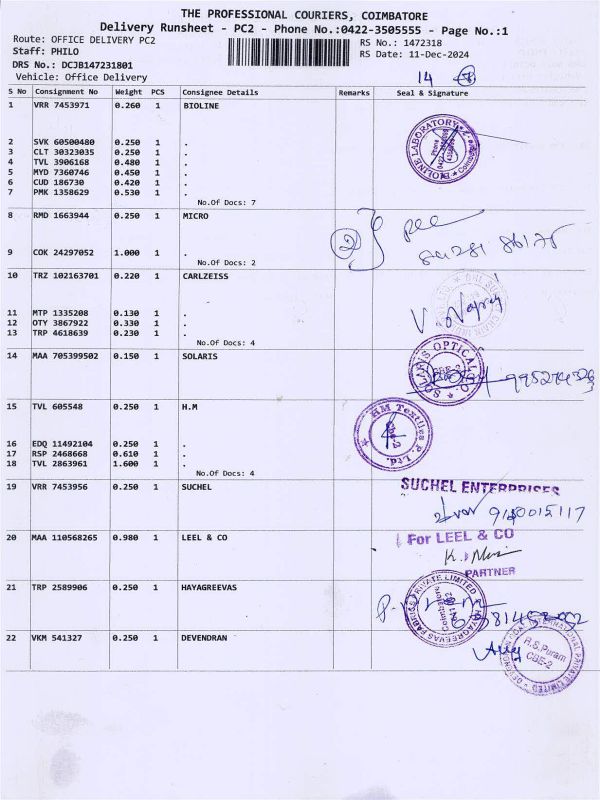 THE PROFESSIONAL COURIERS, COIMBATORE
Delivery Runsheet - PC2 - Phone No.:0422-3505555 - Page No.:1
Route: OFFICE DELIVERY PC2
Staff: PHILO
DRS No.: DCJB147231801
Vehicle: Office Delivery
RS No.: 1472318
RS Date: 11-Dec-2024
14
S No Consignment No Weight PCS Consignee Details Remarks Seal & Signature
1 VRR 7453971 0.260 1 BIOLINE
BIOLINE LABORATORY
2 SVK 60500480 0.250 1 .
3 CLT 30323035 0.250 1 .
4 TVL 3906168 0.480 1 .
5 MYD 7360746 0.450 1 .
6 CUD 186730 0.420 1 .
7 PMK 1358629 0.530 1 .
No.Of Docs: 7
8 RMD 1663944 0.250 1 MICRO
2
9 COK 24297052 1.000 1 .
No.Of Docs: 2
10 TRZ 102163701 0.220 1 CARLZEISS
11 MTP 1335208 0.130 1 .
12 OTY 3867922 0.330 1 .
13 TRP 4618639 0.230 1 .
No.Of Docs: 4
14 MAA 705399502 0.150 1 SOLARIS
SOLARIS OPTICAL
15 TVL 605548 0.250 1 H.M
HM Textiles P. Ltd.
16 EDQ 11492104 0.250 1 .
17 RSP 2468668 0.610 1 .
18 TVL 2863961 1.600 1 .
No.Of Docs: 4
19 VRR 7453956 0.250 1 SUCHEL
SUCHEL ENTERPRISES
9150015117
20 MAA 110568265 0.980 1 LEEL & CO
For LEEL & CO
PARTNER
21 TRP 2589906 0.250 1 HAYAGREEVAS
22 VKM 541327 0.250 1 DEVENDRAN
R.S.Puram
CBE-2